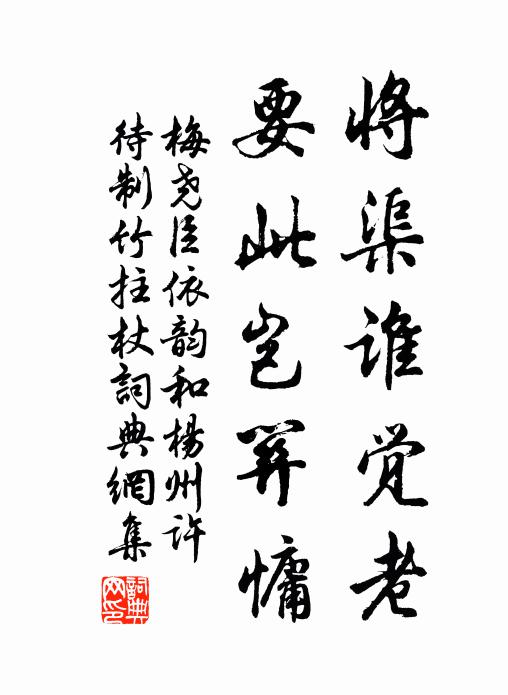 将渠谁觉老
要此岂筭慵
梅尧臣依韵和楊州许
待制竹拄杖詞典網集
詞典
网印